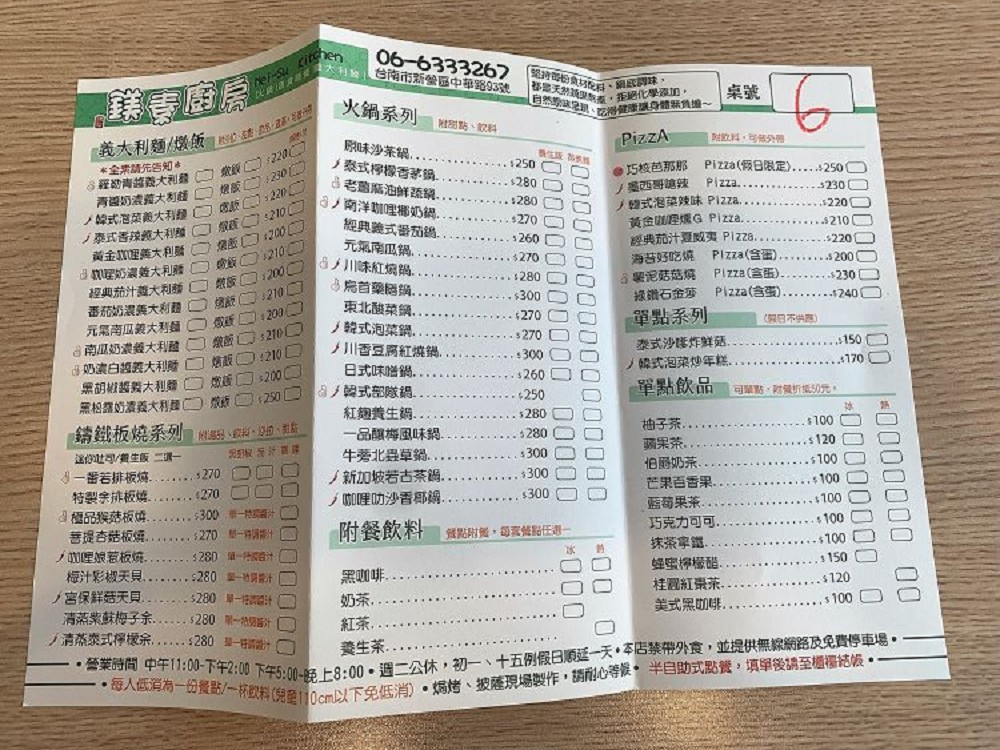 鎂素廚房 Mei-Su Kitchen
06-6333267
台南市新營區中華路93號
堅持每份食材配料、鍋底調味，
都是天然蔬果熬煮，拒絕化學添加，
自然原味呈現、吃得健康讓身體無負擔～
桌號
6
義大利麵/燉飯
*全素請先告知*
羅勒青醬義大利麵 燉飯 $220
青醬奶濃義大利麵 燉飯 $230
韓式泡菜義大利麵 燉飯 $220
泰式香辣義大利麵 燉飯 $210
黃金咖哩義大利麵 燉飯 $200
咖哩奶濃義大利麵 燉飯 $210
經典茄汁義大利麵 燉飯 $200
番茄奶濃義大利麵 燉飯 $210
元氣南瓜義大利麵 燉飯 $200
南瓜奶濃義大利麵 燉飯 $210
奶濃白醬義大利麵 燉飯 $210
黑胡椒醬義大利麵 燉飯 $200
黑松露奶濃義大利麵 燉飯 $250
鑄鐵板燒系列
迷你吐司/養生飯 二選一
一番若排板燒 $270
特製傘排板燒 $270
極品猴菇板燒 $300 單一特調醬汁
菩提杏菇板燒 $270 單一特調醬汁
咖哩娘惹板燒 $280 單一特調醬汁
梅汁彩椒天貝 $280 單一特調醬汁
宮保鮮菇天貝 $280 單一特調醬汁
清蒸紫蘇梅子奈 $280 單一特調醬汁
清蒸泰式檸檬奈 $280 單一特調醬汁
火鍋系列 附甜點、飲料
原味沙茶鍋 $250
泰式檸檬香茅鍋 $280
老薑麻油鮮蔬鍋 $280
南洋咖哩椰奶鍋 $270
經典義式番茄鍋 $260
元氣南瓜鍋 $270
川味紅燒鍋 $280
烏首藥膳鍋 $300
東北酸菜鍋 $270
韓式泡菜鍋 $270
川香豆腐紅燒鍋 $300
日式味噌鍋 $260
韓式部隊鍋 $250
紅麴養生鍋 $280
一品釀梅風味鍋 $280
牛蒡北蟲草鍋 $300
新加坡若古茶鍋 $300
咖哩叻沙香椰鍋 $300
附餐飲料 餐點附餐，每套餐點任選一
冰 熱
黑咖啡
奶茶
紅茶
養生茶
PizzA 附飲料，可做外帶
巧桅芭那那 Pizza(假日限定) $250
墨西哥嗆辣 Pizza $230
韓式泡菜辣味 Pizza $220
黃金咖哩燻G Pizza $210
經典茄汁夏威夷 Pizza $220
海苔好吃燒 Pizza(含蛋) $200
薯泥菇菇燒 Pizza(含蛋) $230
綠鑽石金莎 Pizza(含蛋) $240
單點系列 (假日不供應)
泰式沙嗲炸鮮菇 $150
韓式泡菜炒年糕 $170
單點飲品 可單點，附餐折抵50元。
冰 熱
柚子茶 $100
蘋果茶 $120
伯爵奶茶 $100
芒果百香果 $100
藍莓果茶 $100
巧克力可可 $100
抹茶拿鐵 $100
蜂蜜檸檬醋 $150
桂圓紅棗茶 $120
美式黑咖啡 $100
•營業時間 中午11:00-下午2:00 下午5:00-晚上8:00•週二公休，初一、十五例假日順延一天•本店禁帶外食，並提供無線網路及免費停車場•
•每人低消為一份餐點/一杯飲料(兒童110cm以下免低消)•焗烤、披薩現場製作，請耐心等候•半自助式點餐，填單後請至櫃檯結帳•